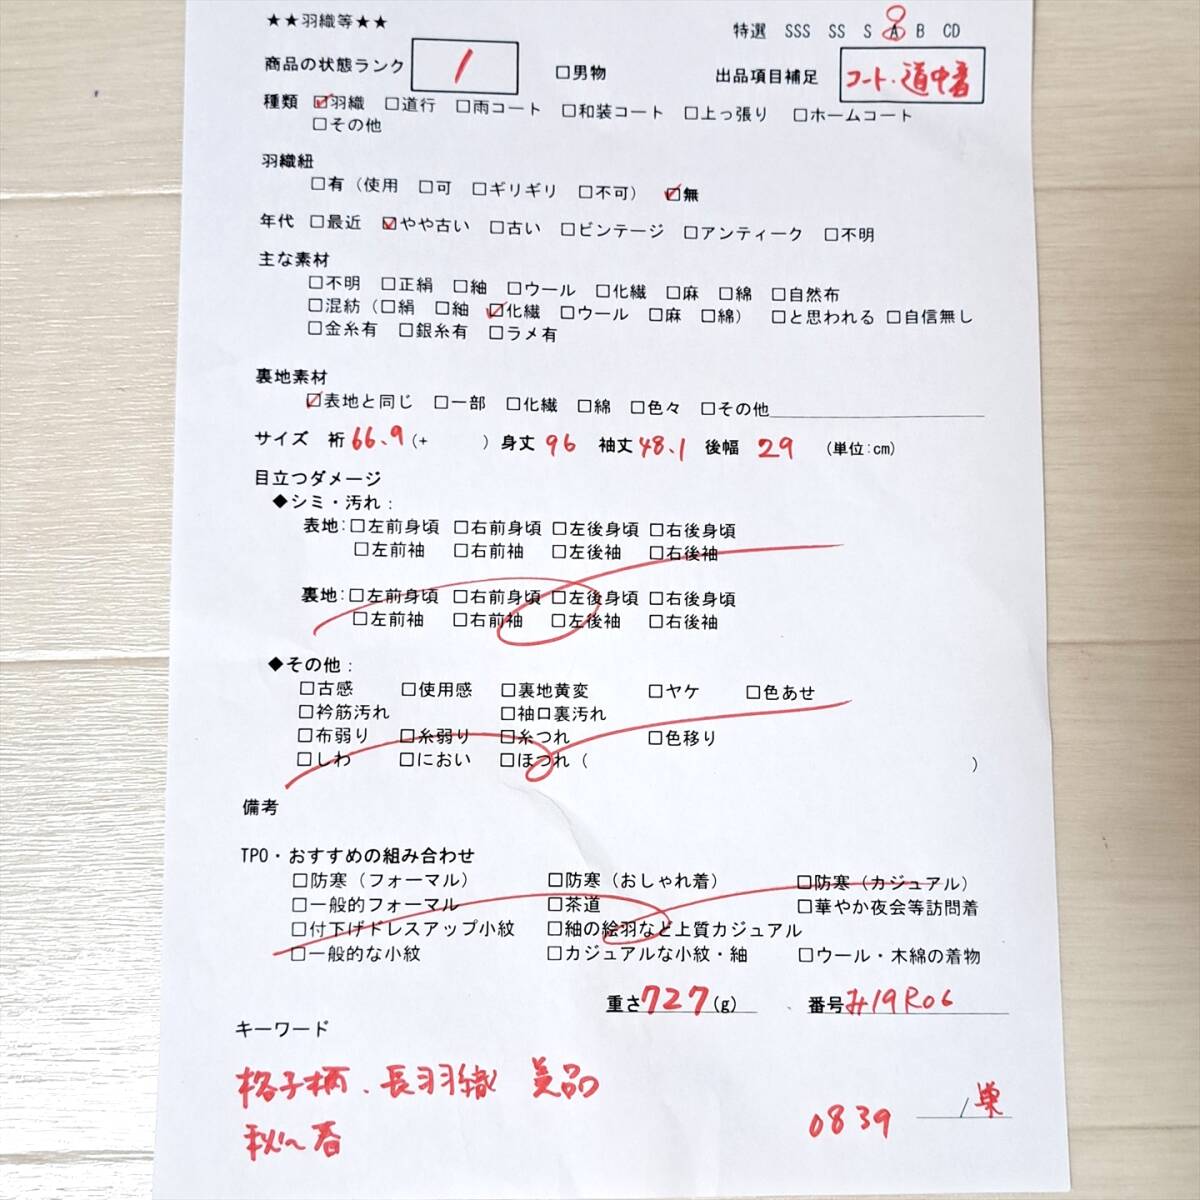 ★★羽織等★★
特選 SSS SS S A B CD
商品の状態ランク 1 □男物 出品項目補足 コート・道中着
種類 ☑羽織 □道行 □雨コート □和装コート □上っ張り □ホームコート
□その他
羽織紐
□有（使用 □可 □ギリギリ □不可） ☑無
年代 □最近 ☑やや古い □古い □ビンテージ □アンティーク □不明
主な素材
□不明 □正絹 □紬 □ウール □化繊 □麻 □綿 □自然布
□混紡（□絹 □紬 ☑化繊 □ウール □麻 □綿） □と思われる □自信無し
□金糸有 □銀糸有 □ラメ有
裏地素材
☑表地と同じ □一部 □化繊 □綿 □色々 □その他
サイズ 裄66.9（+ ）身丈 96 袖丈48.1 後幅 29 （単位:cm）
目立つダメージ
◆シミ・汚れ：
表地:□左前身頃 □右前身頃 □左後身頃 □右後身頃
□左前袖 □右前袖 □左後袖 □右後袖
裏地:□左前身頃 □右前身頃 □左後身頃 □右後身頃
□左前袖 □右前袖 □左後袖 □右後袖
◆その他：
□古感 □使用感 □裏地黄変 □ヤケ □色あせ
□衿筋汚れ □袖口裏汚れ
□布弱り □糸弱り □糸つれ □色移り
□しわ □におい □ほつれ（ ）
備考
TPO・おすすめの組み合わせ
□防寒（フォーマル） □防寒（おしゃれ着） □防寒（カジュアル）
□一般的フォーマル □茶道 □華やか夜会等訪問着
□付下げドレスアップ小紋 □紬の絵羽など上質カジュアル
□一般的な小紋 □カジュアルな小紋・紬 □ウール・木綿の着物
重さ727(g) 番号み19R06
キーワード
格子柄、長羽織 美品
秋～春
0839 /